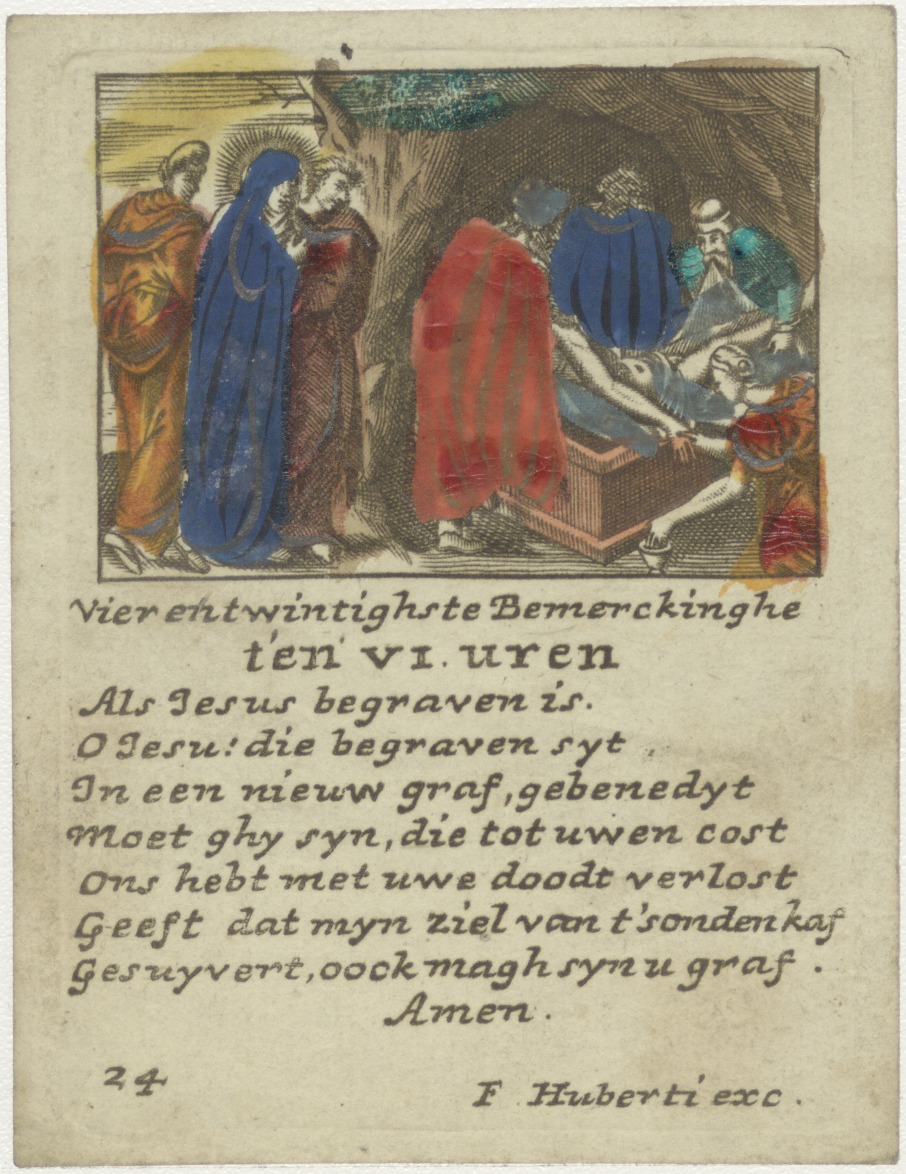 Vierentwintighste Bemerckinghe
t'en VI. uren
Als Jesus begraven is.
O Jesu! die begraven syt
In een nieuw graf, gebenedyt
Moet ghy syn, die tot uwen cost
Ons hebt met uwe doodt verlost
Geeft dat myn ziel van t'sonden kaf
Gesuyvert, oock magh syn u graf.
Amen.
24
F Huberti exc.